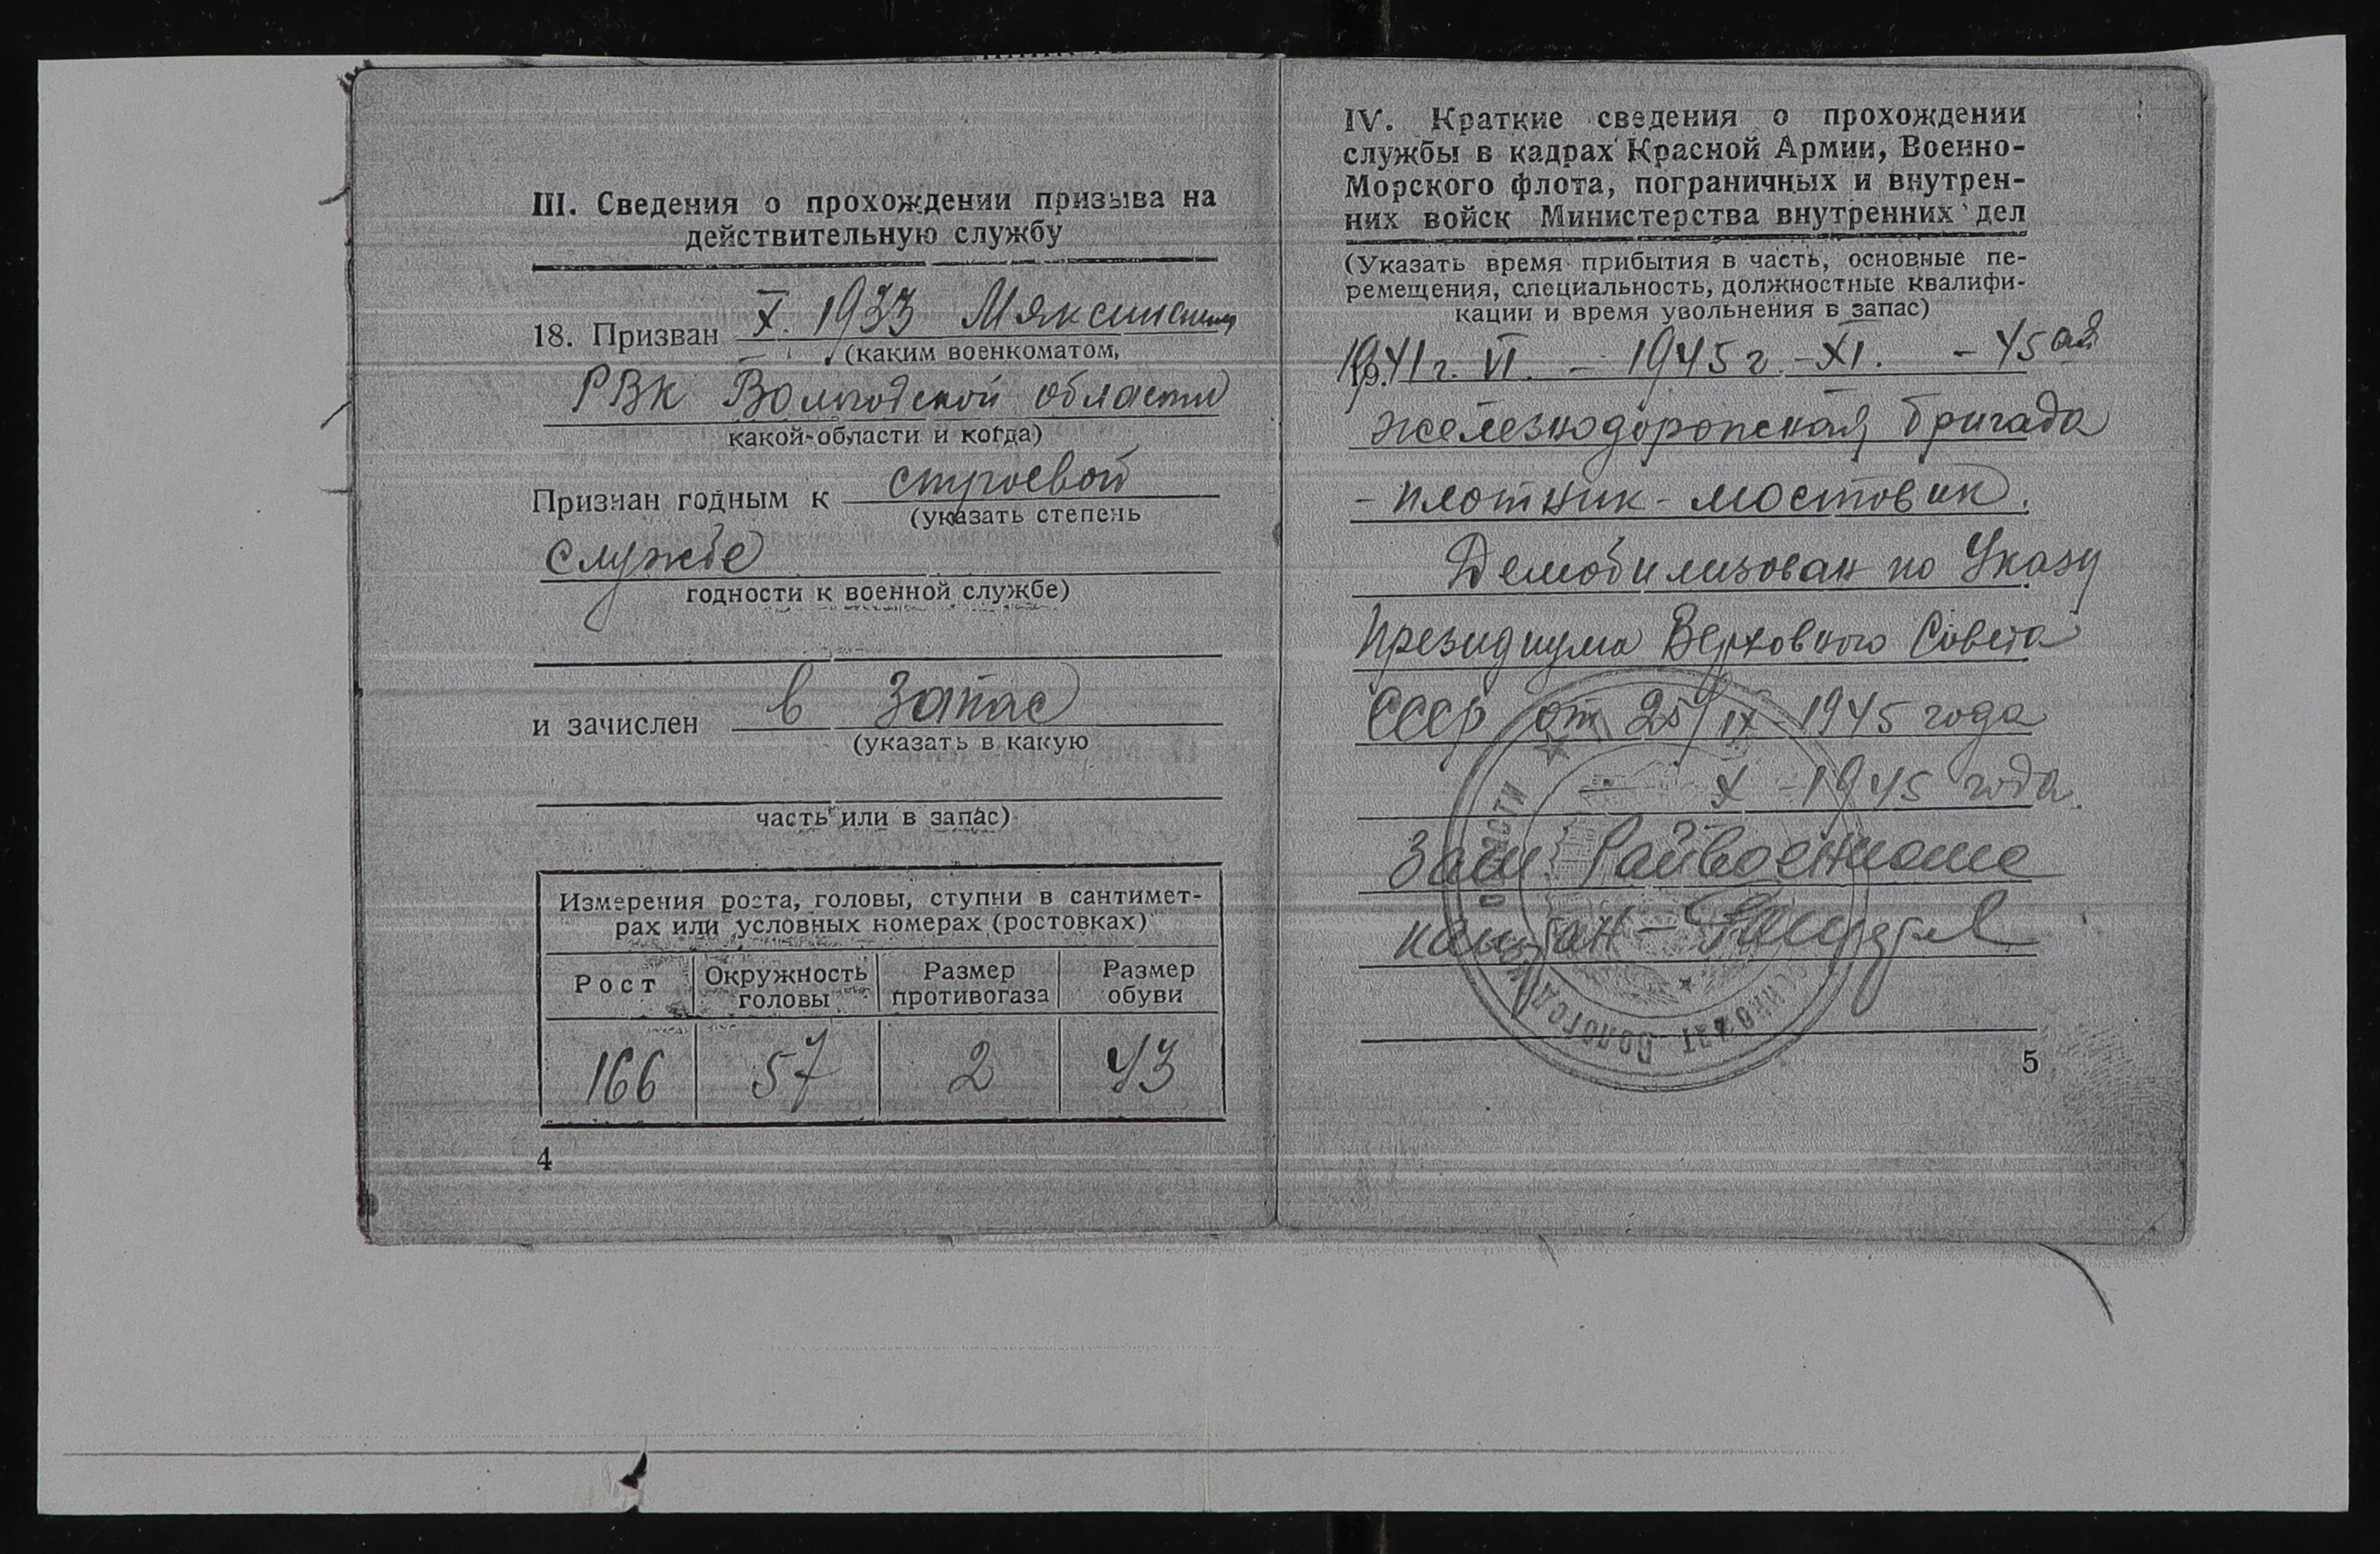 III. Сведения о прохождении призыва на
действительную службу
18. Призван X. 1933 Мяксинским
(каким военкоматом,
РВК Вологодской области
какой области и когда)
Признан годным к строевой
(указать степень
службе
годности к военной службе)
и зачислен в запас
(указать в какую
часть или в запас)
Измерения роста, головы, ступни в сантимет-
рах или условных номерах (ростовках)
Рост Окружность головы Размер противогаза Размер обуви
166 57 2 43
4
IV. Краткие сведения о прохождении
службы в кадрах Красной Армии, Военно-
Морского флота, пограничных и внутрен-
них войск Министерства внутренних дел
(Указать время прибытия в часть, основные пе-
ремещения, специальность, должностные квалифи-
кации и время увольнения в запас)
1941 г. VI. - 1945 г. - XI. - 45 ая
железнодорожная бригада
- плотник - мостовик.
Демобилизован по Указу
Президиума Верховного Совета
СССР от 25/IX - 1945 года
X - 1945 года.
Зам. Райвоенкома
капитан -
5